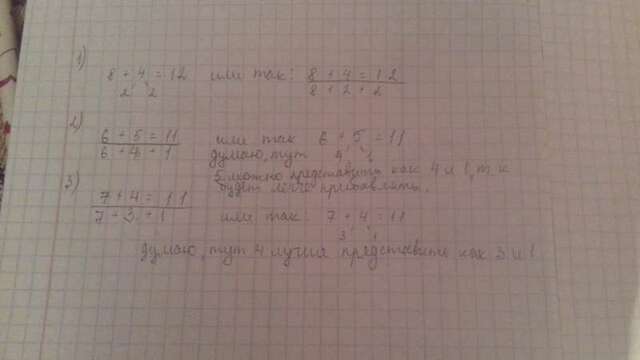 1)
8 + 4 = 12 или так: 8 + 4 = 12
2 2 8 + 2 + 2
2)
6 + 5 = 11 или так 6 + 5 = 11
6 + 4 + 1 думаю, тут 4 1
5 можно представить как 4 и 1, т. к
3) будет легче прибавлять.
7 + 4 = 11
7 + 3 + 1 или так: 7 + 4 = 11
3 1
думаю, тут 4 лучше представить как 3 и 1